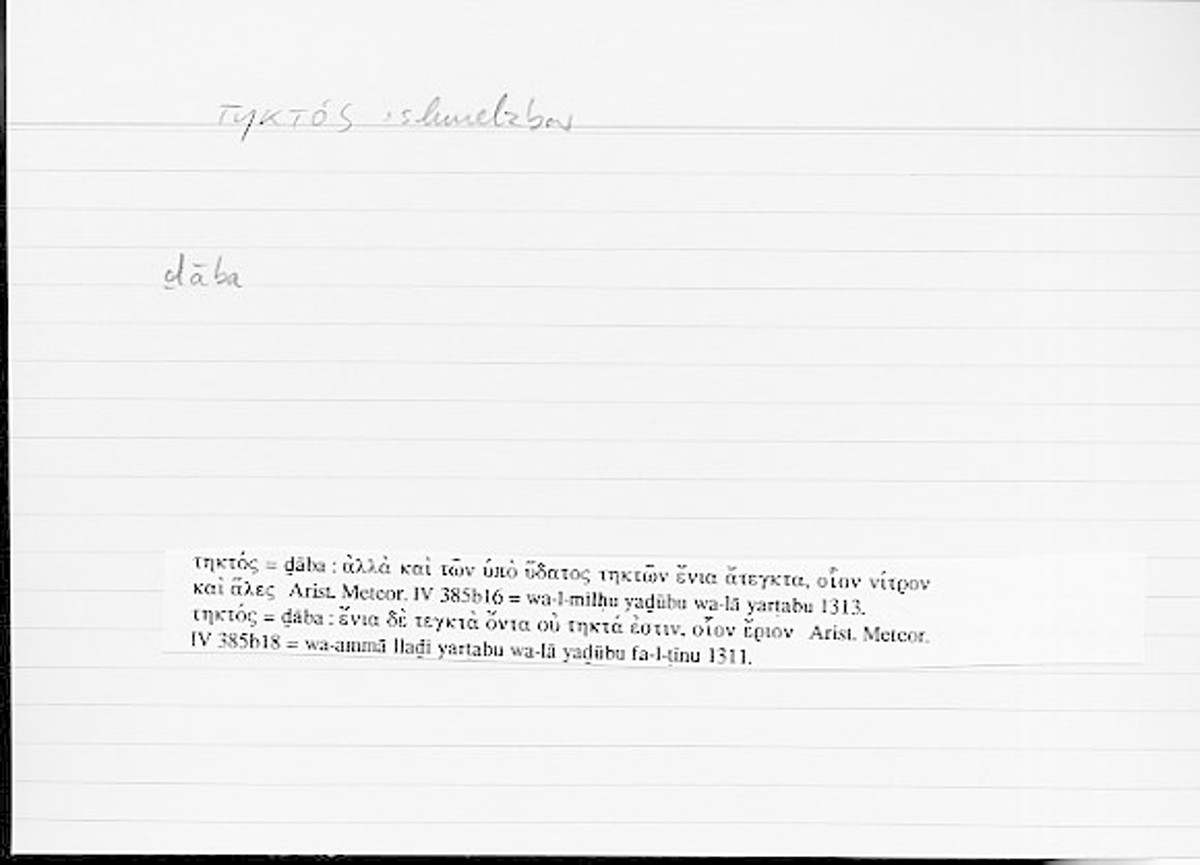 τηκτός : schmelzbar
ḏāba
τηκτός = ḏāba : ἀλλὰ καὶ τῶν ὑπὸ ὕδατος τηκτῶν ἔνια ἄτεγκτα, οἷον νίτρον
καὶ ἅλες Arist. Meteor. IV 385b16 = wa-l-milḥu yaḏūbu wa-lā yarṭabu 1313.
τηκτός = ḏāba : ἔνια δὲ τεγκτὰ ὄντα οὐ τηκτά ἐστιν, οἷον ἔριον Arist. Meteor.
IV 385b18 = wa-ammā llaḏī yarṭabu wa-lā yaḏūbu fa-l-ṭīnu 1311.